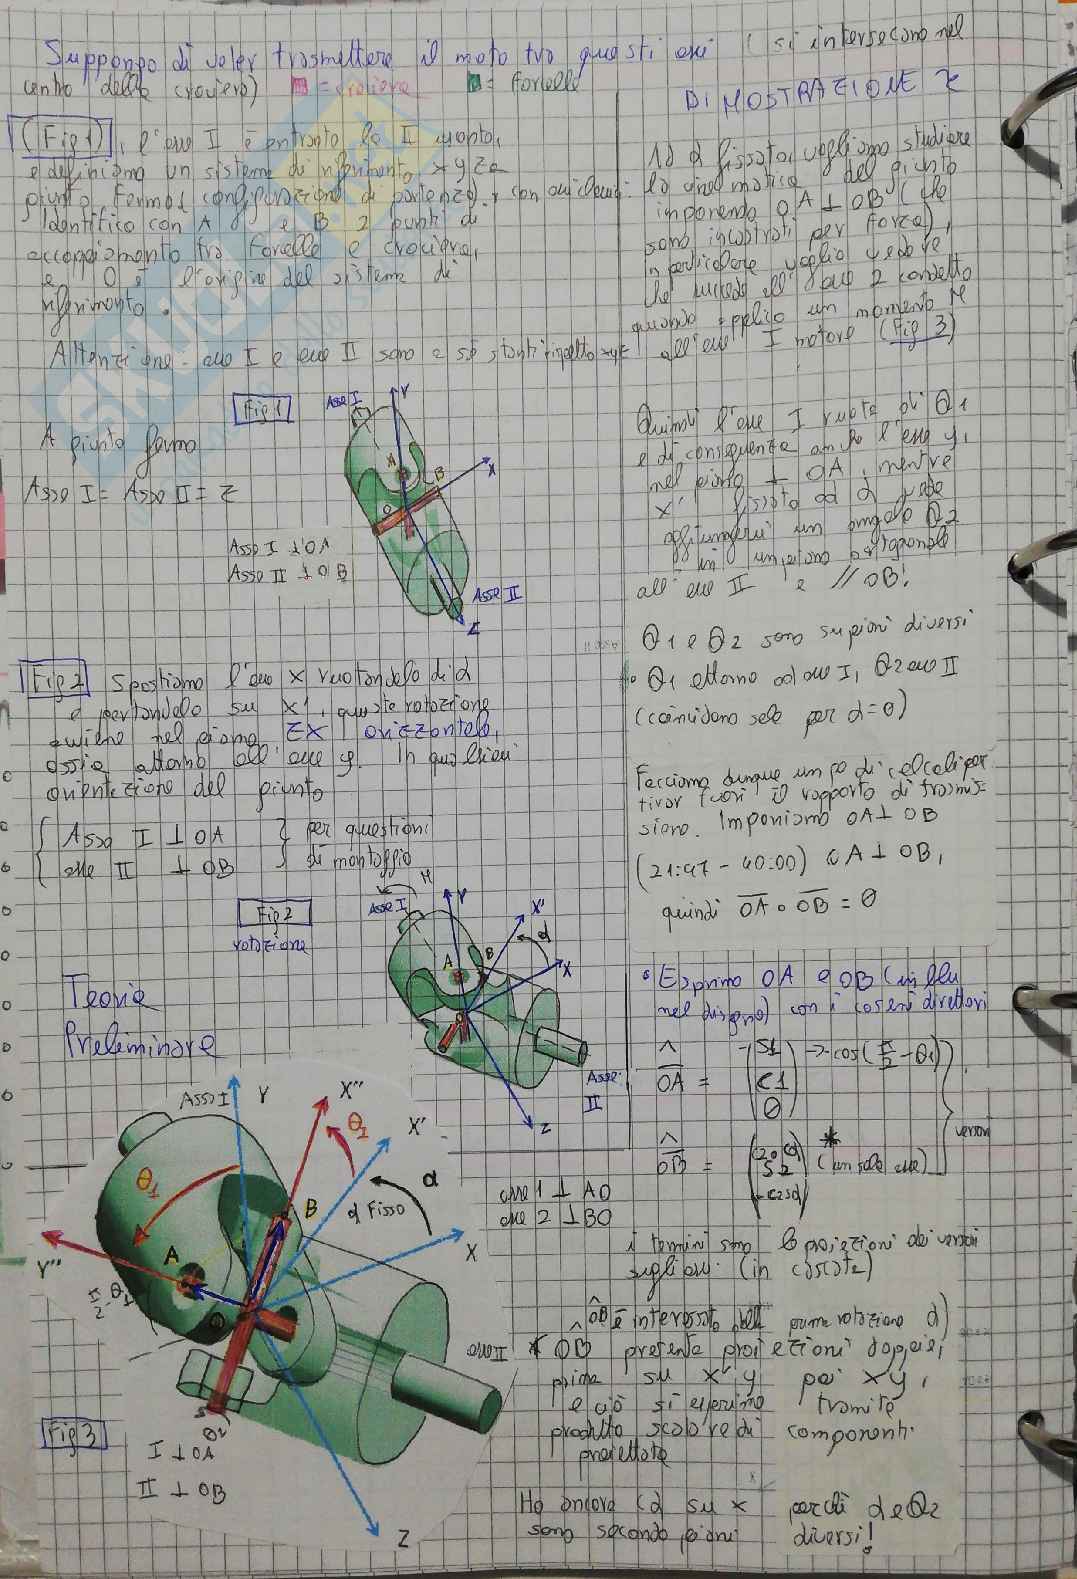 Suppongo di voler trasmettere il moto tra questi assi (si intersecano nel
centro della crociera) = crociera = forcelle
DIMOSTRAZIONE τ
(Fig 1), l'asse I è entrante, la II uscente,
e definiamo un sistema di riferimento xyz a
giunto fermo (configurazione di partenza),
Identifico con A e B 2 punti di
accoppiamento tra forcelle e crociera,
e O è l'origine del sistema di
riferimento.
Attenzione: asse I e asse II sono a sé stanti rispetto xyz
Fig 1
A giunto fermo
Asse I = Asse II = Z
Asse I
Y
A
B
X
O
Asse I ⊥ OA
Asse II ⊥ OB
Asse II
Z
Fig 2 Spostiamo l'asse x ruotandolo di α
e portandolo su x', questa rotazione
avviene nel piano ZX orizzontale,
ossia attorno all'asse y. In qualsiasi
orientazione del giunto
Asse I ⊥ OA
asse II ⊥ OB
per questioni
di montaggio
Fig 2
rotazione
M
Asse I
Y
X''
α
A
B
X
O
Asse
II
Z
Teoria
Preliminare
Asse I
Y
X''
θ1
X'
α
α Fisso
X
θ1
B
A
Y''
π/2 - θ1
O
asse II
θ2
Fig 3
I ⊥ OA
II ⊥ OB
Z
asse 1 ⊥ AO
asse 2 ⊥ BO
Ad α fissato, vogliamo studiare
la cinematica del giunto
imponendo OA ⊥ OB (che
sono incastrati per forza),
in particolare voglio vedere
che succede all'asse 2 condotto
quando applico un momento M
all'asse I motore (Fig 3)
Quindi l'asse I ruota di θ1
e di conseguenza anche l'asse y,
nel piano ⊥ OA, mentre
x' fissato ad α
aggiungerei un angolo θ2
in un piano ortogonale
all'asse II e // OB!
θ1 e θ2 sono su piani diversi
θ1 attorno ad asse I, θ2 asse II
(coincidono solo per α=0)
Facciamo dunque un po di calcoli per
tirar fuori il rapporto di trasmis-
sione. Imponiamo OA ⊥ OB
(21:47 - 40:00) OA ⊥ OB,
quindi OA ∘ OB = 0
Esprimo OA e OB (in blu
nel disegno) con i coseni direttori
OA = (-S1 C1 0) → -cos(π/2 - θ1)
OB = (C2 Cα S2 -C2 Sα) * (un solo asse)
versori
i termini sono le proiezioni dei versori
sugli assi (in cascata)
OB è interessato dalla prima rotazione α)
* OB presenta proiezioni doppie,
prima su x'y' poi xy,
e ciò si esprime tramite
prodotto scalare di componenti
proiettate
Ho ancora Cα su x perchè α e θ2
sono secondo piani diversi!